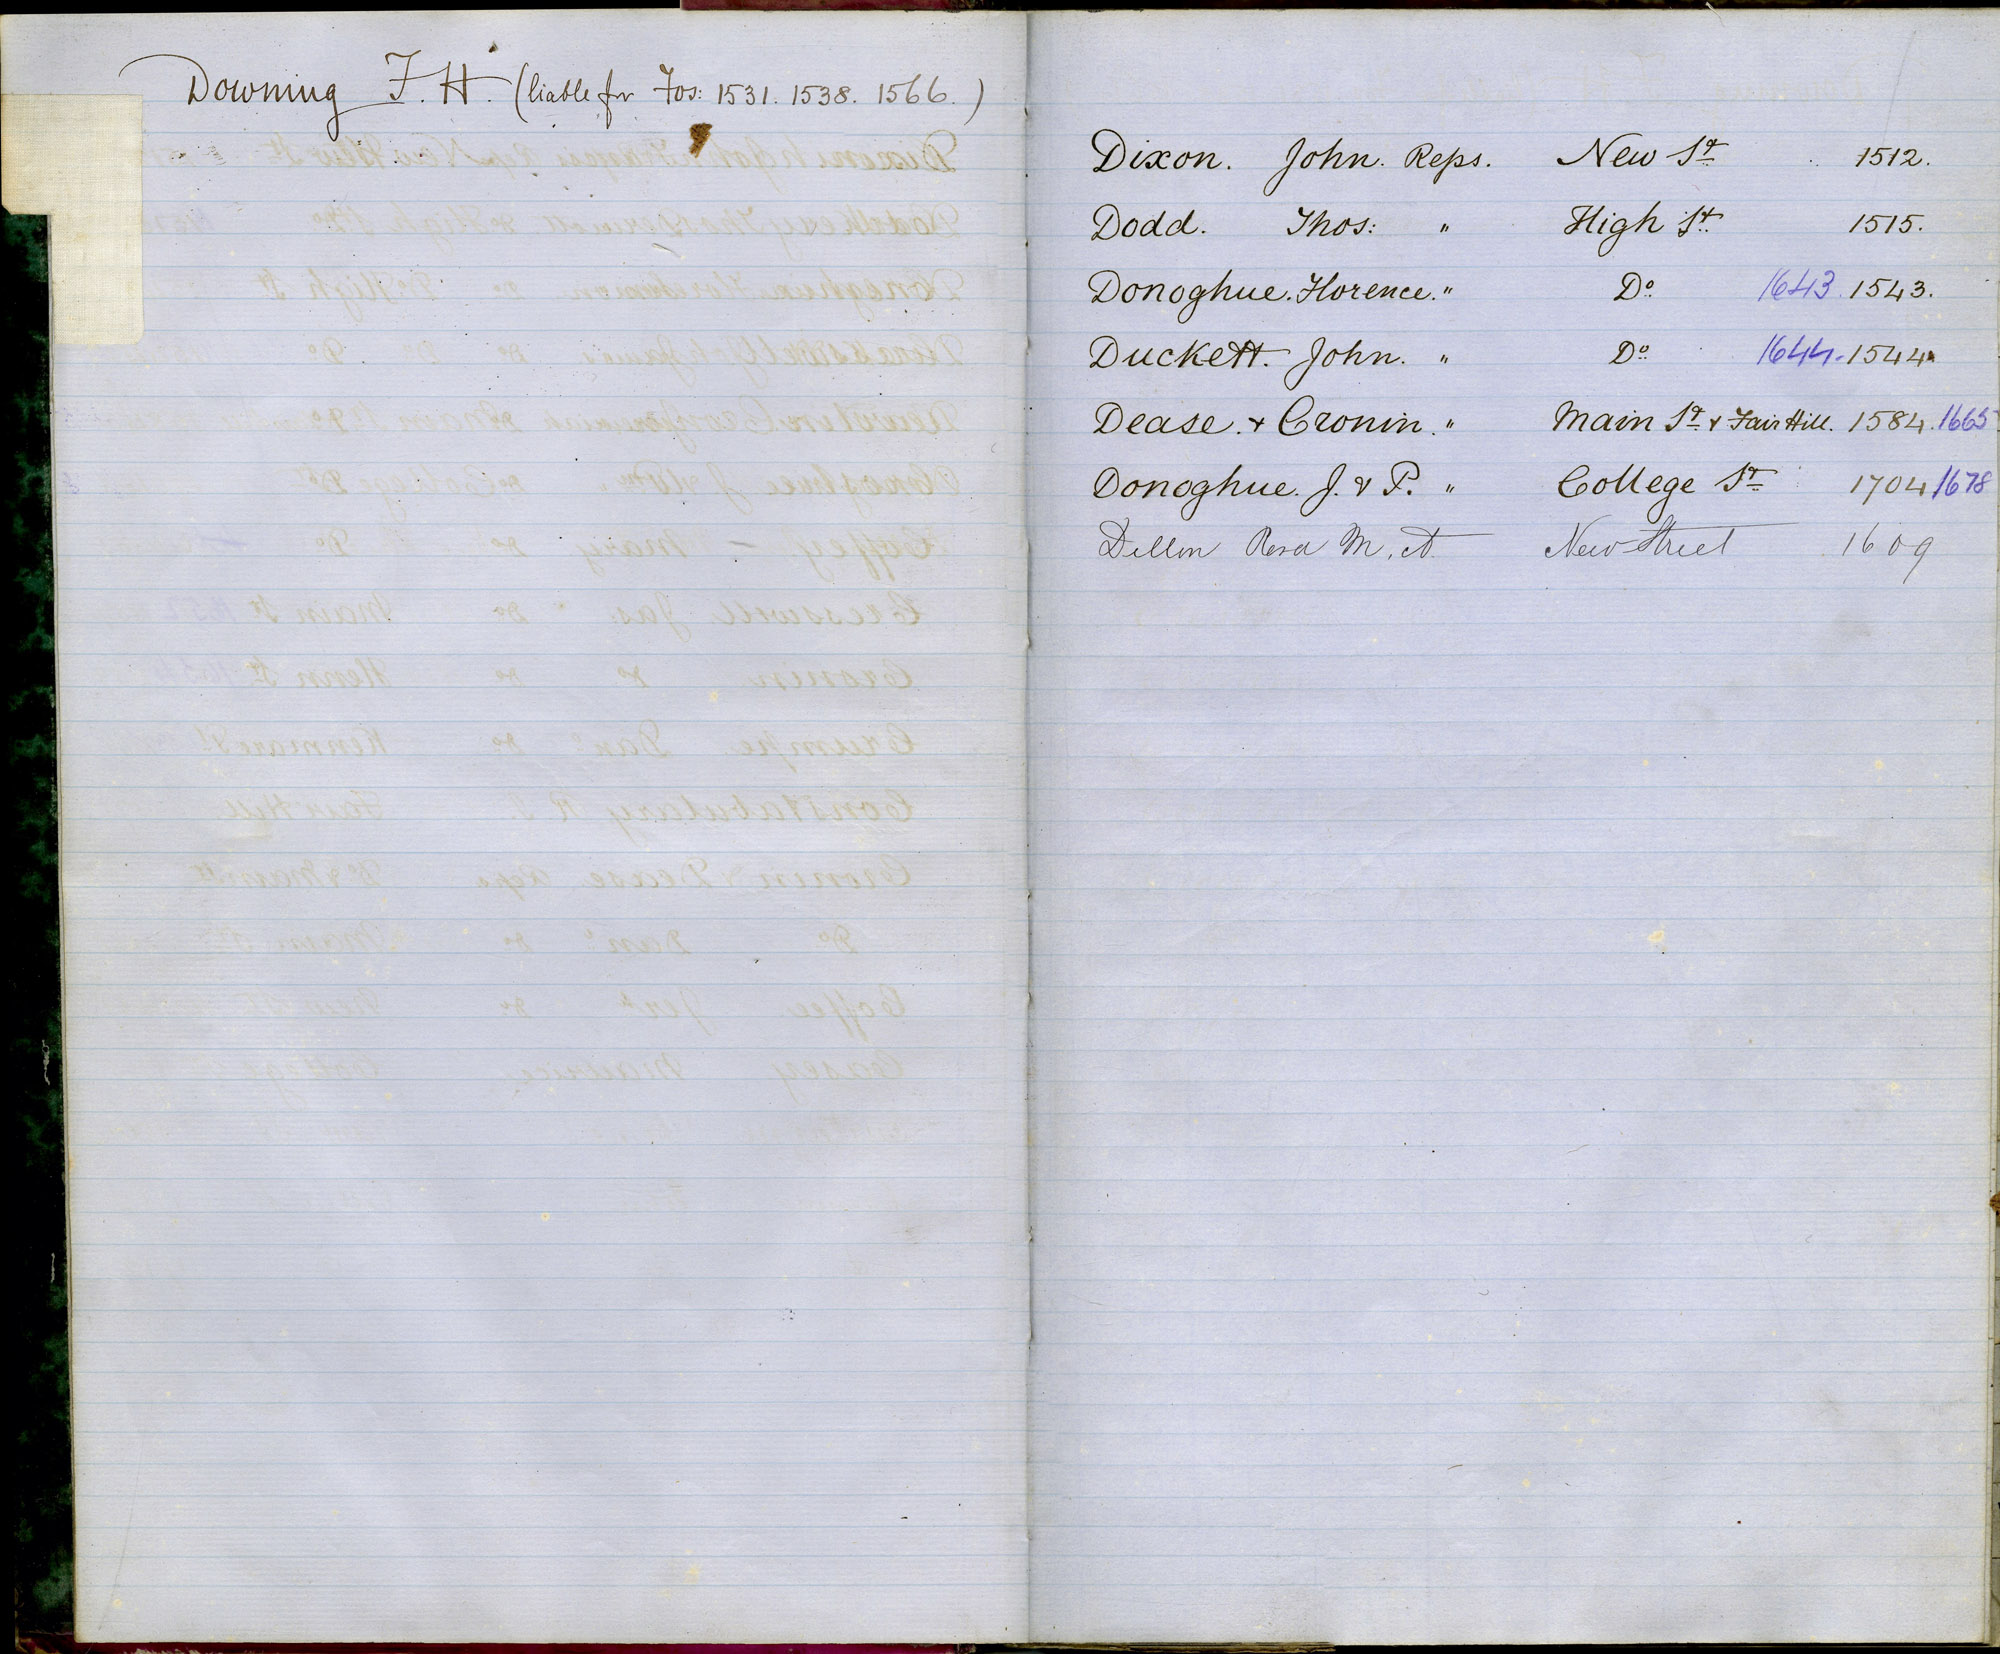 Downing F. H. (liable for Fos: 1531. 1538. 1566.)
Dixon. John. Reps. New St 1512.
Dodd. Thos: " High St 1515.
Donoghue. Florence. " Do 1643. 1543.
Duckett. John. " Do 1644. 1544.
Dease. & Cronin. " Main St & Fair Hill. 1584. 1665
Donoghue. J. & P. " College St 1704 1678
Dillon M. A. New Street 1609